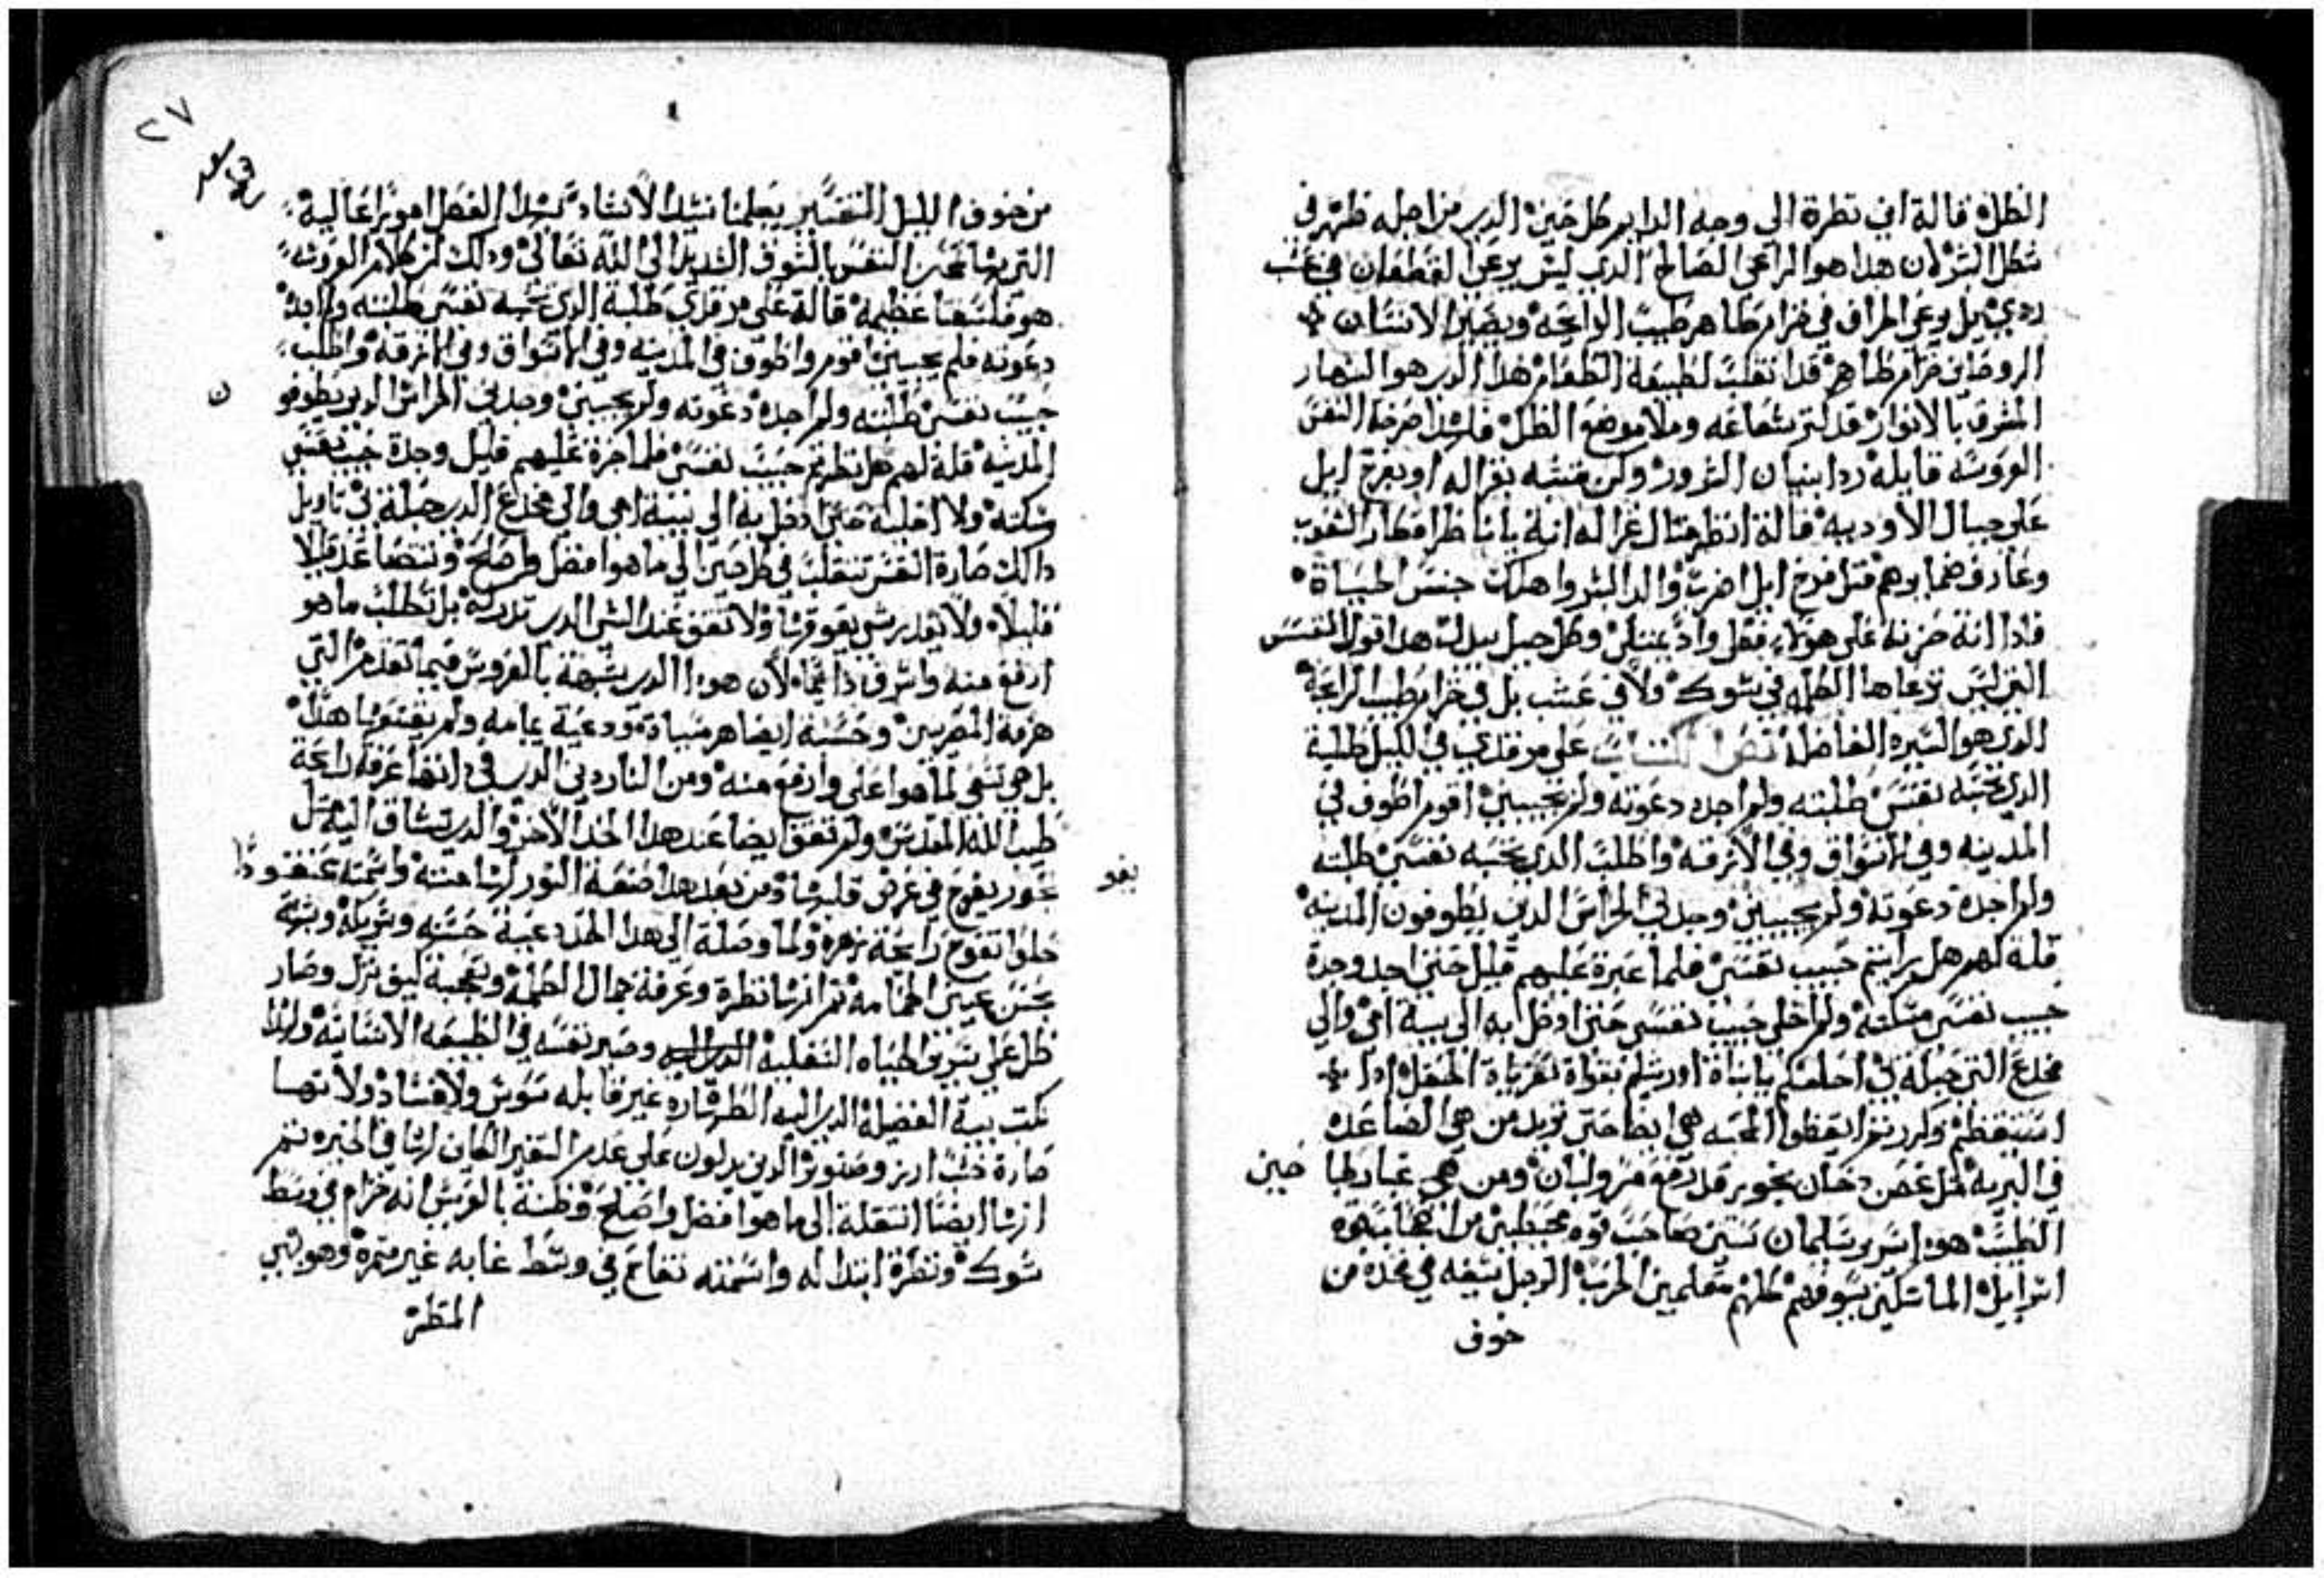 الظل قالة اني نظرة الي وجه الدايم كل حين الدي من اجله ظهر في
شكل البشر لان هدا هو الراعي الصالح الدي ليس يرعي القطعان في عشب
ردي بل يرعي الخراف في خزام طاهر طيب الرايحه ويصير الانسان
الروحاني خزام طاهر قد انقلب لطبيعة الطعام هدا الدي هو النهار
المشرق بالانوار قد نشر شعاعه وملا موضع الظل فلهدا صرخة النفس
العروسه قايله ردا بنيان الشرور وكن متشبه بغزاله او بفرخ ايل
علي جبال الاوديه قالة انظر مثال غزاله انة يا ناظر افكار القلوب
وعارف ضمايرهم مثل فرخ ايل اضرب والد البشر واهلك جنس الحيات
فادا انة حزنة علي هولاء فكل واد يمتلئ وكل جبل يدل هدا قول النفس
التي ليس ترعاها الكلمه في شوك ولا في عشب بل في خزام طيب الرايحه
الدي هو السيره الفاضله نص الكتاب علي مرقدي في الليل طلبة
الدي تحبه نفسي طلبته ولم اجده دعوته ولم يجيبني اقوم اطوف في
المدينه وفي الاسواق وفي الازقه واطلب الدي تحبه نفسي طلبته
ولم اجده دعوته ولم يجيبني وجدني الحراس الدين يطوفون المدينه
قلة لهم هل رايتم حبيب نفسي فلما عبرة عليهم قليل حتي اجد وجدة
حبيب نفسي مسكته ولم اخلي حبيب نفسي حتي ادخل به الي بيت امي والي
مخدع التي حبلة بي احلفكم يا بنات اورشليم بقواة وعزيات الحقل ادا
استيقظتم وكررتم ايقظوا المحبه هي ايضا حتي تريد من هي الصاعده
في البريه مثل غصن دخان بخور قد رفع مر ولبان ومن هي غبارها حين
الطيب هودا سرير سليمان ستين صاحب قوه محيطين من اصحاب قوه
اسراييل الماسكين سيوفهم كلهم متعلمين الحرب الرجل سيفه في فخده من
خوف
٢٧
من خوف الليل التفسير يعلمنا نشيد الانشاد بهدا الفصل امورا عاليه
التي بها تحن النفس بالشوق الشديد الي الله تعالي ودلك ان كلام العروسه
هو فلسفة عظيمة قالة علي مرقدي طلبة الدي تحبه نفسي طلبته ولم اجده
دعوته فلم يجيبني اقوم واطوف في المدينه وفي الاسواق وفي الازقة واطلب
حبيب نفسي طلبته ولم اجده دعوته ولم يجيبني وجدني الحراس الدين يطوفو ن
المدينه قلة لهم هل نظرتم حبيب نفسي فلما جزة عليهم قليل وجدة حبيب نفسي
مسكته ولا اخليه حتي ادخل به الي بيت امي والي مخدع الدي حبلة بي تاويل
دالك صارة النفس تنقلب في كل حين الي ما هو افضل واصلح وتتضاعد قليلا
قليلا ولا يقدر شي يعوقها ولا تقف عند الشي الدي تدركه بل تطلب ما هو
ارفع منه واشرف دايما لان هودا الدي شبهة بالفروس فيما تقدم التي
هزمة المصريين وحسنة ايضا هر مبادة ودعية يمامه ولم يقنعها هدا
بل هي تسعي لما هو اعلي وارفع منه ومن الناردين الدي في دانها عرفة رايحة
طيب الله المقدس ولم تقف ايضا عند هدا الحد الاخر والدي تشتاق اليه مثل
بخور يفوح في عرض قلبها ومن بعد هدا صنعة النور لها منه واسمته عنقودا
بعد
حلوا تفوح رايحة زهره ولما وصلة الي هدا الحد دعية حسنه وشريكة وشبهة
بحسن عين الحمامه ثم انها نظرة وعرفة جمال الكلمه وتعجبة كيف نزل وصار
ظل علي سرير الحياه السفليه وصير نفسه في الطبيعه الانسانيه ولهدا
كمت بية الفضيلة الدي اليه النظر صارة غير قابله سوس ولا فساد ولانها
صارة خشب ارز وصنوبر الدين يدلون علي عدم التغير الكاين لها في الخيره ثم
انها ايضا انتقلة الي ما هو افضل واصلح وظنة بالعريس انه خزام في وسط
شوك ونظرة ابتدا له واسمته تفاح في وسط غابه غير متمره وهو بهي
المنظر